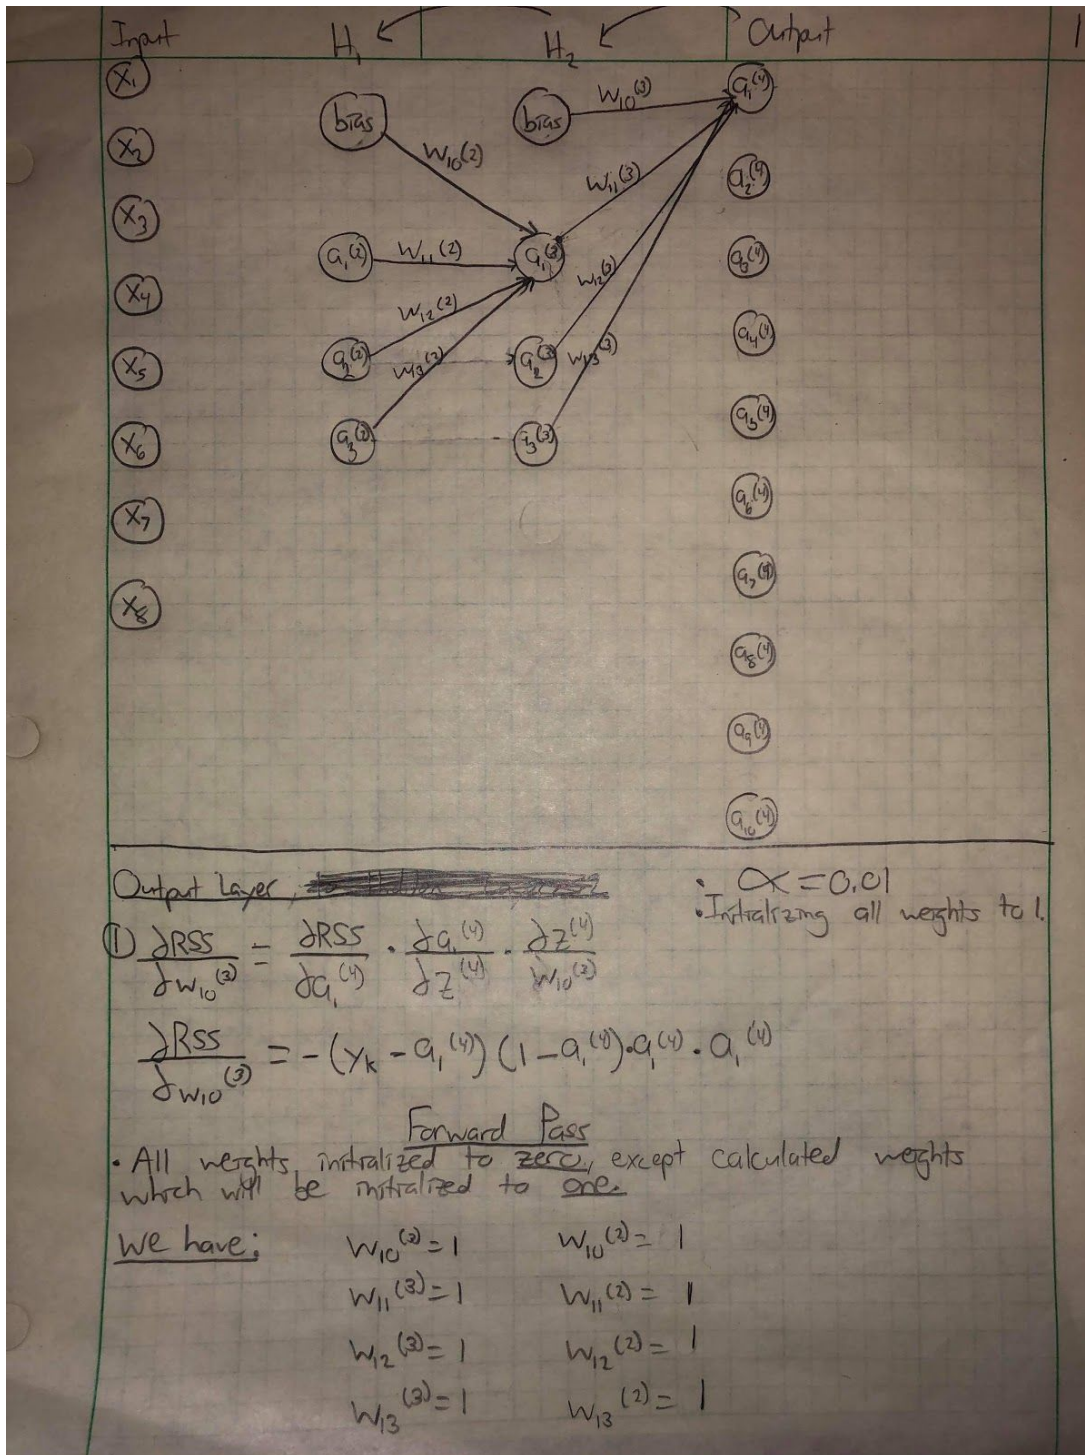 Input H₁ H₂ Output 1
X₁ bias W₁₀(2) bias W₁₀(3) a₁(4)
X₂ W₁₁(3) a₂(4)
X₃ a₁(2) W₁₁(2) a₁(3) a₃(4)
X₄ W₁₂(2) W₁₂(3) a₄(4)
X₅ a₂(2) W₁₃(2) a₂(3) W₁₃(3)
X₆ a₃(2) a₃(3) a₅(4)
X₇ a₆(4)
X₈ a₇(4)
a₈(4)
a₉(4)
a₁₀(4)
Output Layer,
• α = 0.01
• Initializing all weights to 1.
① ∂RSS/∂W₁₀(3) = ∂RSS/∂a₁(4) · ∂a₁(4)/∂Z(4) · ∂Z(4)/W₁₀(3)
∂RSS/∂W₁₀(3) = -(yₖ - a₁(4))(1 - a₁(4))·a₁(4)·a₁(4)
Forward Pass
• All weights initialized to zero, except calculated weights
which will be initialized to one.
We have: W₁₀(3) = 1 W₁₀(2) = 1
W₁₁(3) = 1 W₁₁(2) = 1
W₁₂(3) = 1 W₁₂(2) = 1
W₁₃(3) = 1 W₁₃(2) = 1